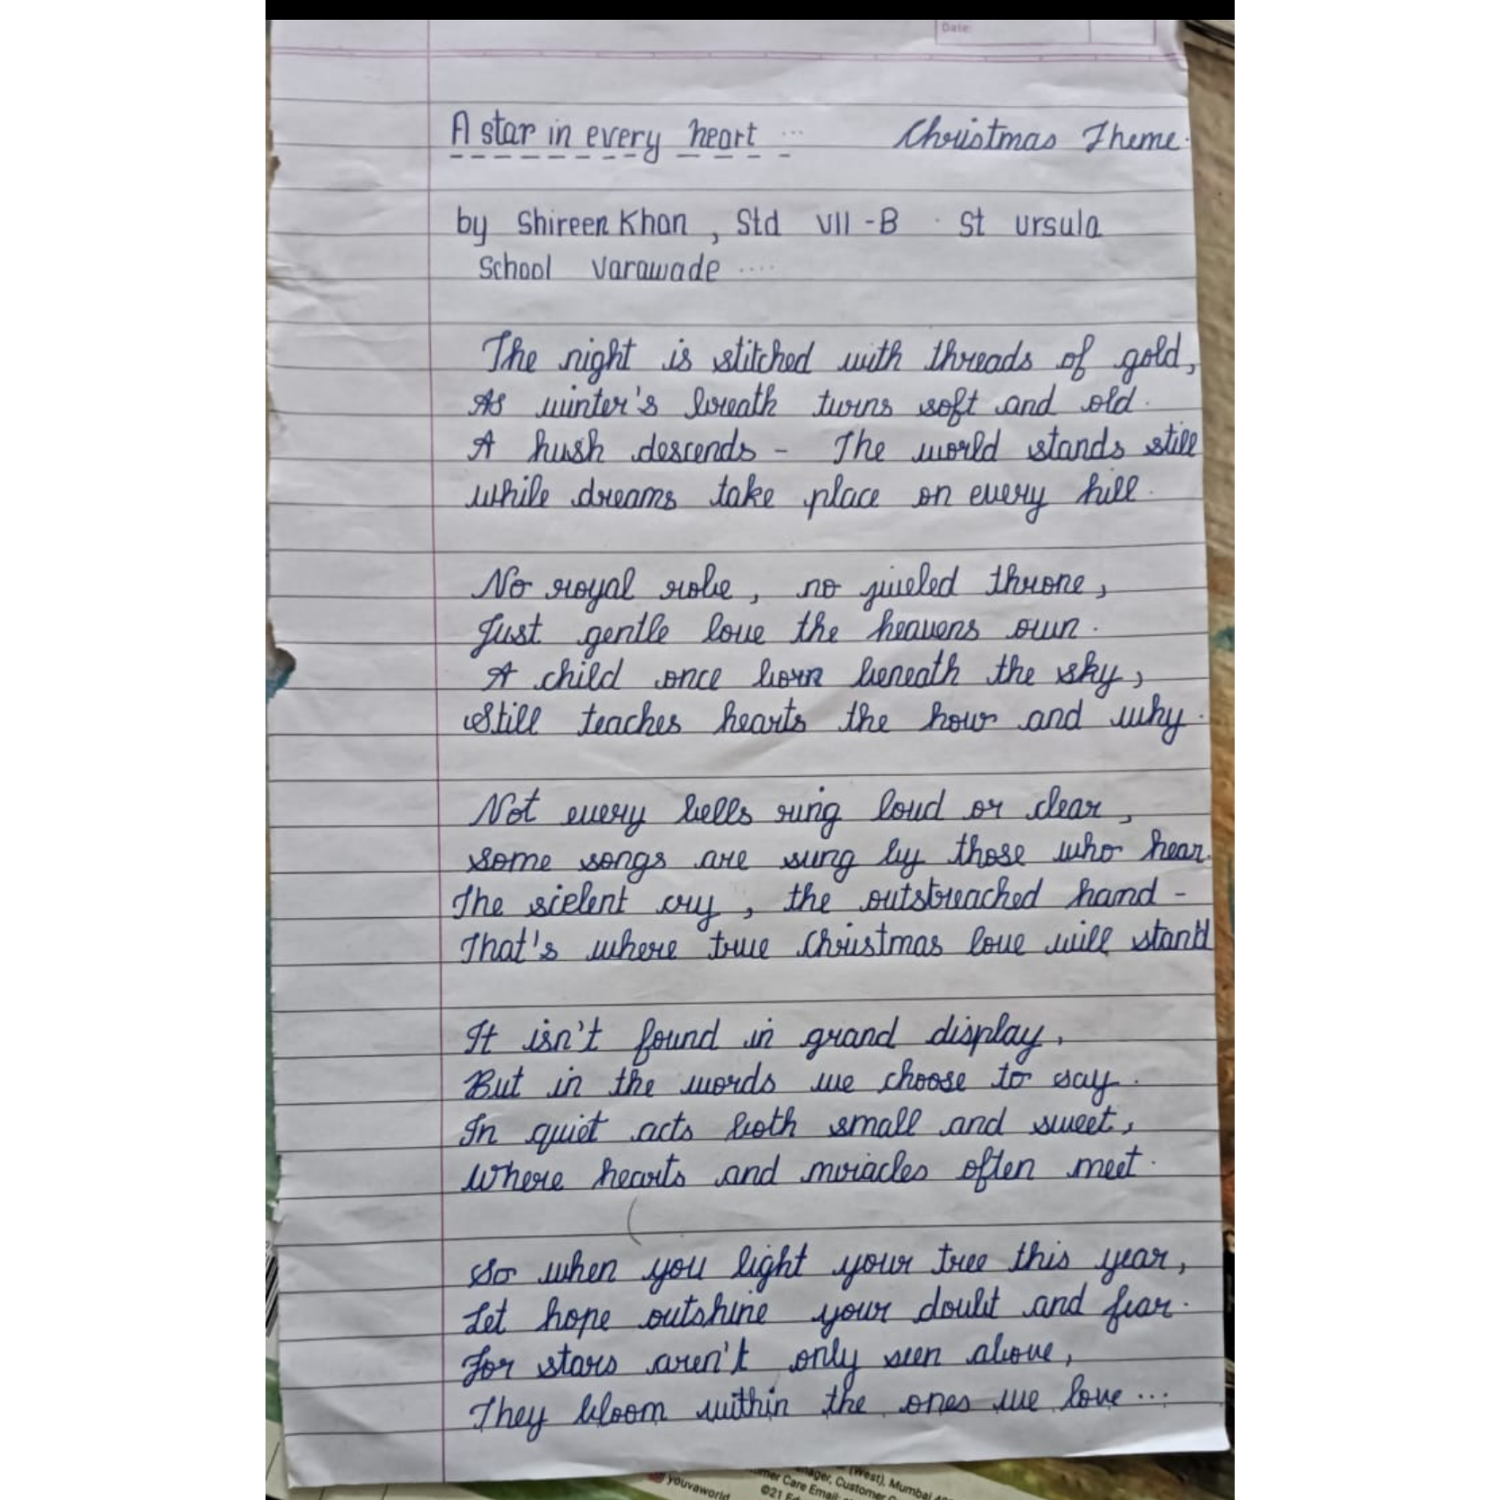 Date:
A star in every heart ... Christmas Theme.
by Shireen Khan, Std VII-B . St ursula
School Varawade ....
The night is stitched with threads of gold,
As winter's breath turns soft and old.
A hush descends - The world stands still
while dreams take place on every hill.
No royal robe, no jiweled throne,
Just gentle love the heavens own.
A child once born beneath the sky,
Still teaches hearts the how and why.
Not every bells ring loud or clear,
Some songs are sung by those who hear.
The scielent cry, the outstreached hand -
That's where true Christmas love will stand
It isn't found in grand display,
But in the words we choose to say.
In quiet acts both small and sweet,
Where hearts and miracles often meet.
So when you light your tree this year,
Let hope outshine your doubt and fear.
For stars aren't only seen above,
They bloom within the ones we love...
(West), Mumbai
Customer
mer Care Email:
youvaworld
©21